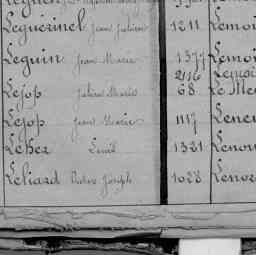 Leguérinel Jean Julien 1211 Lemoi
Leguin Jean Marie 1377 Lemoi
2116 Lemoi
Lejop Julien Marie 68 Le Me
Lejop Jean Marie 1117 Lene
Lehez Louis 1321 Lenor
Leliard Pierre Joseph 1028 Lenor